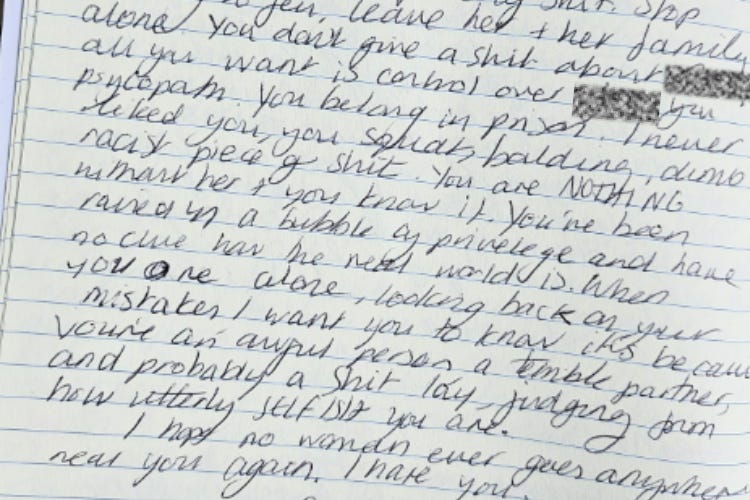 shit. Stop
you, leave her + her family
alone. You don't give a shit about
all you want is control over you
psycopath. You belong in prison. I never
liked you, you squat, balding, dumb
racist piece of shit. You are NOTHING
without her + you know it. You've been
raised in a bubble of privelege and have
no clue how the real world is. When
you are alone, looking back on your
mistakes I want you to know it's because
You're an awful person a terrible partner,
and probably a shit lay, judging from
how utterly SELFISH you are.
I hope no woman ever goes anywhere
near you again. I hate you.